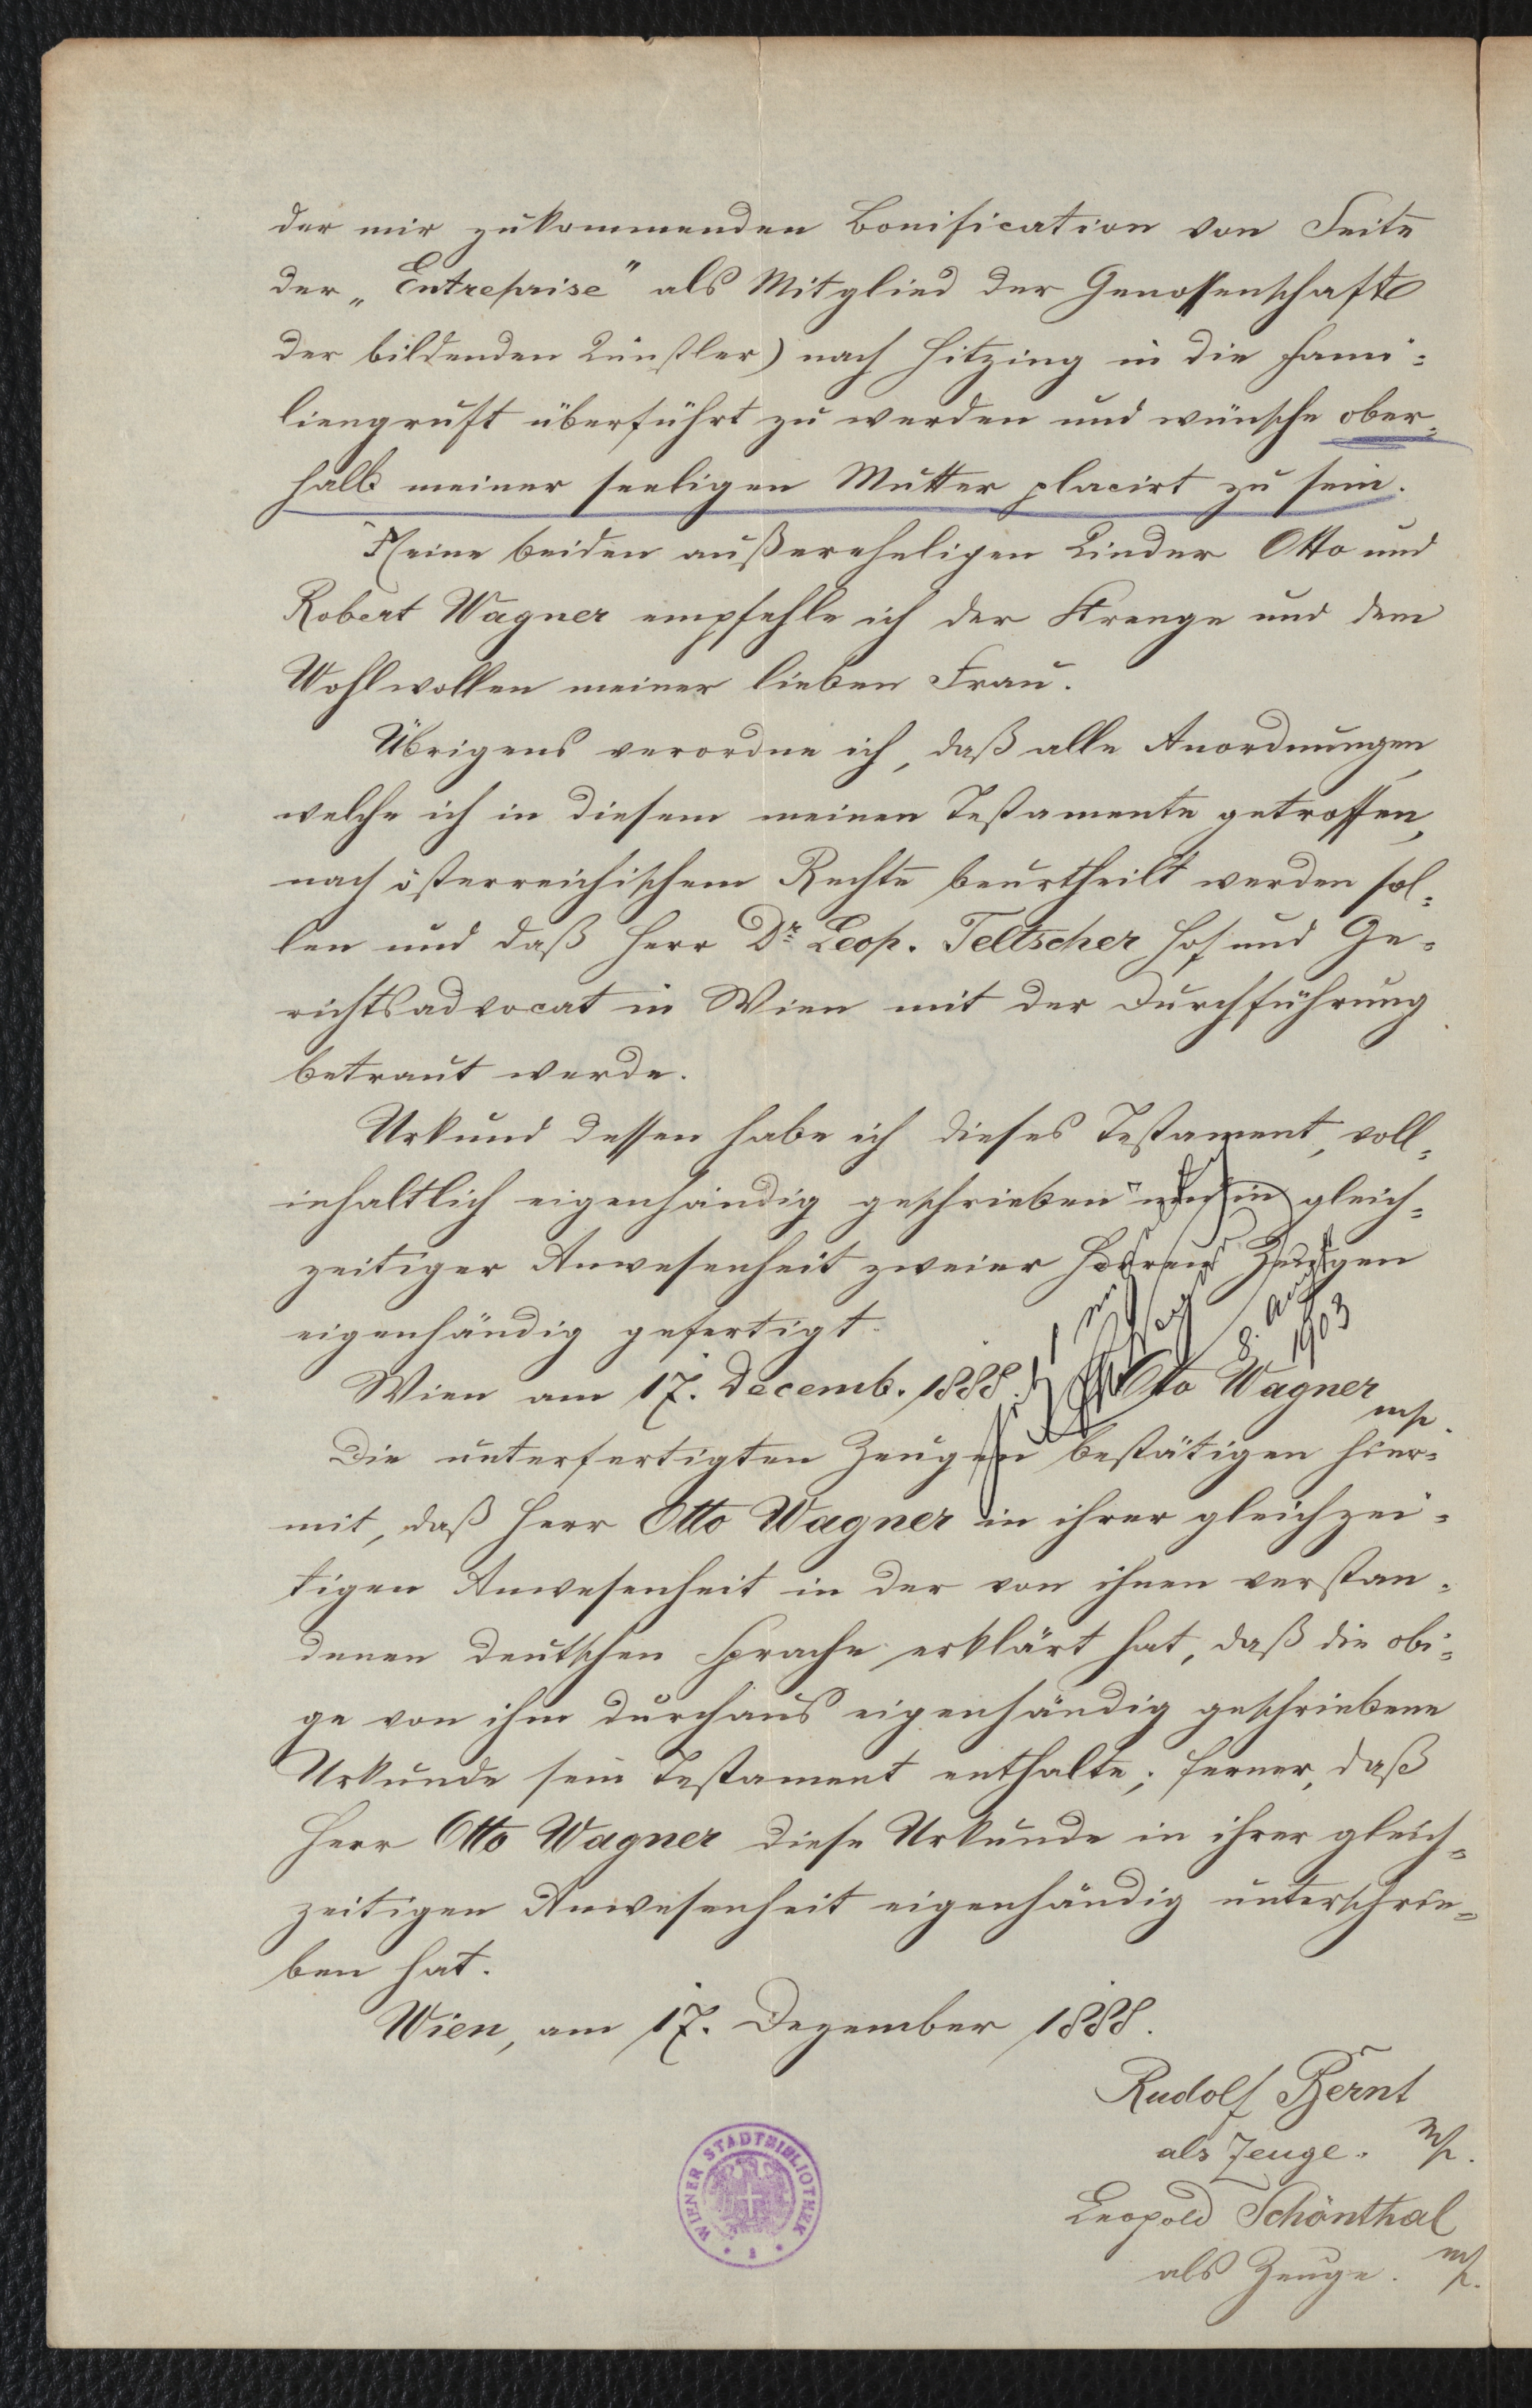 der mir zukommenden Bonification von Seite
der „Entreprise" als Mitglied der Genossenschaft
der bildenden Künstler) nach Hitzing in die Fami=
liengruft überführt zu werden und wünsche ober=
halb meiner seeligen Mutter placirt zu sein.
Meine beiden außerehelichen Kinder Otto und
Robert Wagner empfehle ich der Strenge und dem
Wohlwollen meiner lieben Frau.
Übrigens verordne ich, daß alle Anordnungen,
welche ich in diesem meinen Testamente getroffen,
nach österreichischem Rechte beurtheilt werden sol=
len und daß Herr Dr. Leop. Teltscher Hof und Ge=
richtsadvocat in Wien mit der Durchführung
betraut werde.
Urkund dessen habe ich dieses Testament, voll=
inhaltlich eigenhändig geschrieben und in gleich=
zeitiger Anwesenheit zweier Herren Zeugen
eigenhändig gefertigt.
8. Aug
1903
Wien am 17. Decemb. 1888. Otto Wagner
mp.
Die unterfertigten Zeugen bestätigen hier=
mit, daß Herr Otto Wagner in ihrer gleichzei=
tigen Anwesenheit in der von ihnen verstan=
denen deutschen Sprache erklärt hat, daß die obi=
ge von ihm durchaus eigenhändig geschriebene
Urkunde sein Testament enthalte; ferner, daß
Herr Otto Wagner diese Urkunde in ihrer gleich=
zeitigen Anwesenheit eigenhändig unterschrie=
ben hat.
Wien, am 17. Dezember 1888.
Rudolf Bernt
als Zeuge. mp.
Leopold Schönthal
als Zeuge. mp.
WIENER STADTBIBLIOTHEK